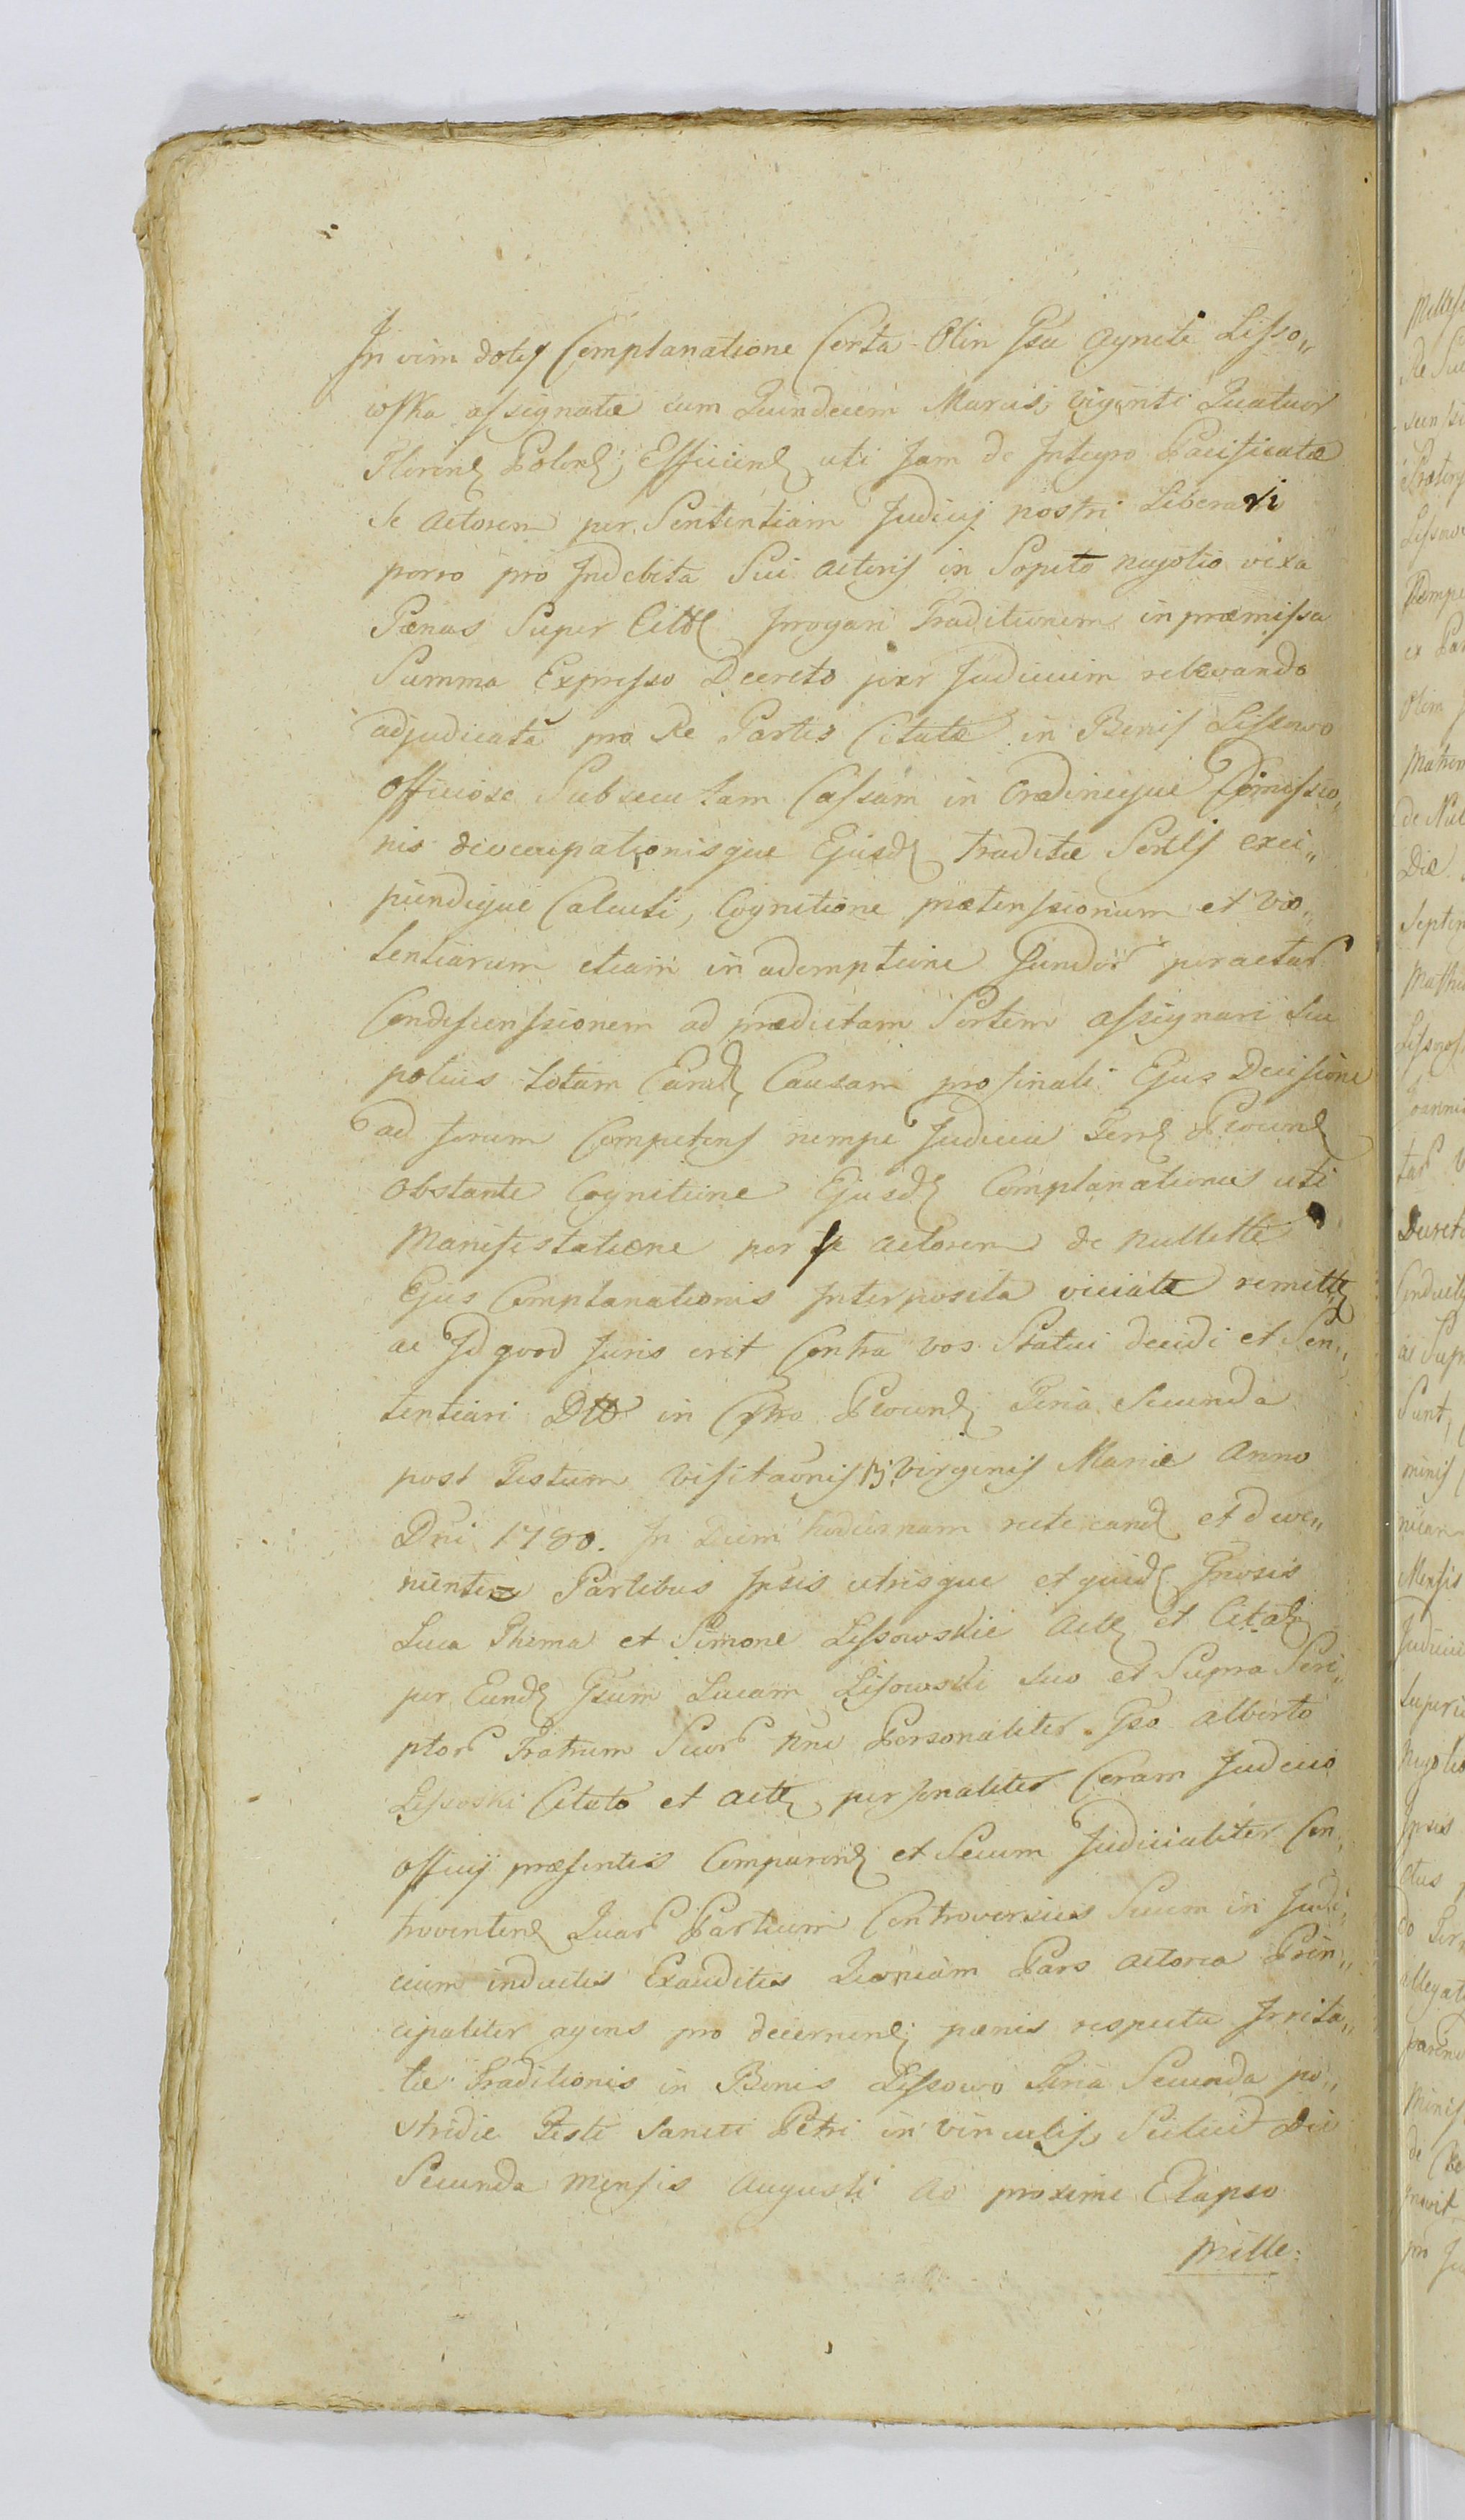 In vim dotis Complanatione Certa Olim Gsa Agneti Lisso„
wska assignatæ cum Quindecim Marcis, viginti Quatuor
Floren Polon; Efficien uti Jam de Integro Pacificatæ
se actorem per Sententiam Judicij nostri Liberari
porro pro Indebita Sui actoris in Sopito negotio vexa
Pænas Super Citt Irrogari Traditionem in præmissa
Summa Expresso Decreto per Judicium relevando
adjudicatâ pro Re Partis Citatæ in Bonis Lissowo
officiose Subsecutam Cassam in Ordineque Dimissio„
nis deoccupationisque Ejusd traditæ Sortis exci„
piendique Calculi, Cognitione prætenssionum et vio„
lentiarum etiam in ademptione fundor peractar
Condescenssionem ad prædictam Sortem assignari Seu
potius totam Eand Causam pro finali Ejus Decisione
ad forum Competens nempe Judicia Terr Plocen
obstante Cognitione Ejusd Complanationis uti
Manifestatione per se actorem de nullitte
Ejus Complanationis Interposita viciatæ remitti
ac Id quod Juris erit Contra vos Statui decidi et Sen„
tentiari Dtt in Cstro Plocen Feria Secunda
post Festum Visitaonis B. Virginis Mariæ Anno
Dni 1780. In Diem hodiernam recte cand et deve„
niente Partibus Ipsis utrisque et quid Gnosis
Luca Thoma et Simone Lissowskie Actt et Citat
per Eund Gsum Lucam Lisowski Suo et Supra Scri„
ptor Fratrum Suor nne Personaliter Gso Alberto
Lissoski Citato et actt personaliter Coram Judicio
officij præsentis Comparen et Secum Judicialiter Con„
troverten Quar Partium Controversiis Suum in Judi„
cium inductis Exauditis Quoniam Pars actorea Prin„
cipaliter agens pro decernen pænis respectu Irrita„
tæ Traditionis in Bonis Lissowo Feria Secunda po„
stridie Festi Sancti Petri in Vinculis, Scilicet Die
Secunda Mensis Augusti Ao proxime Elapso
Mille: